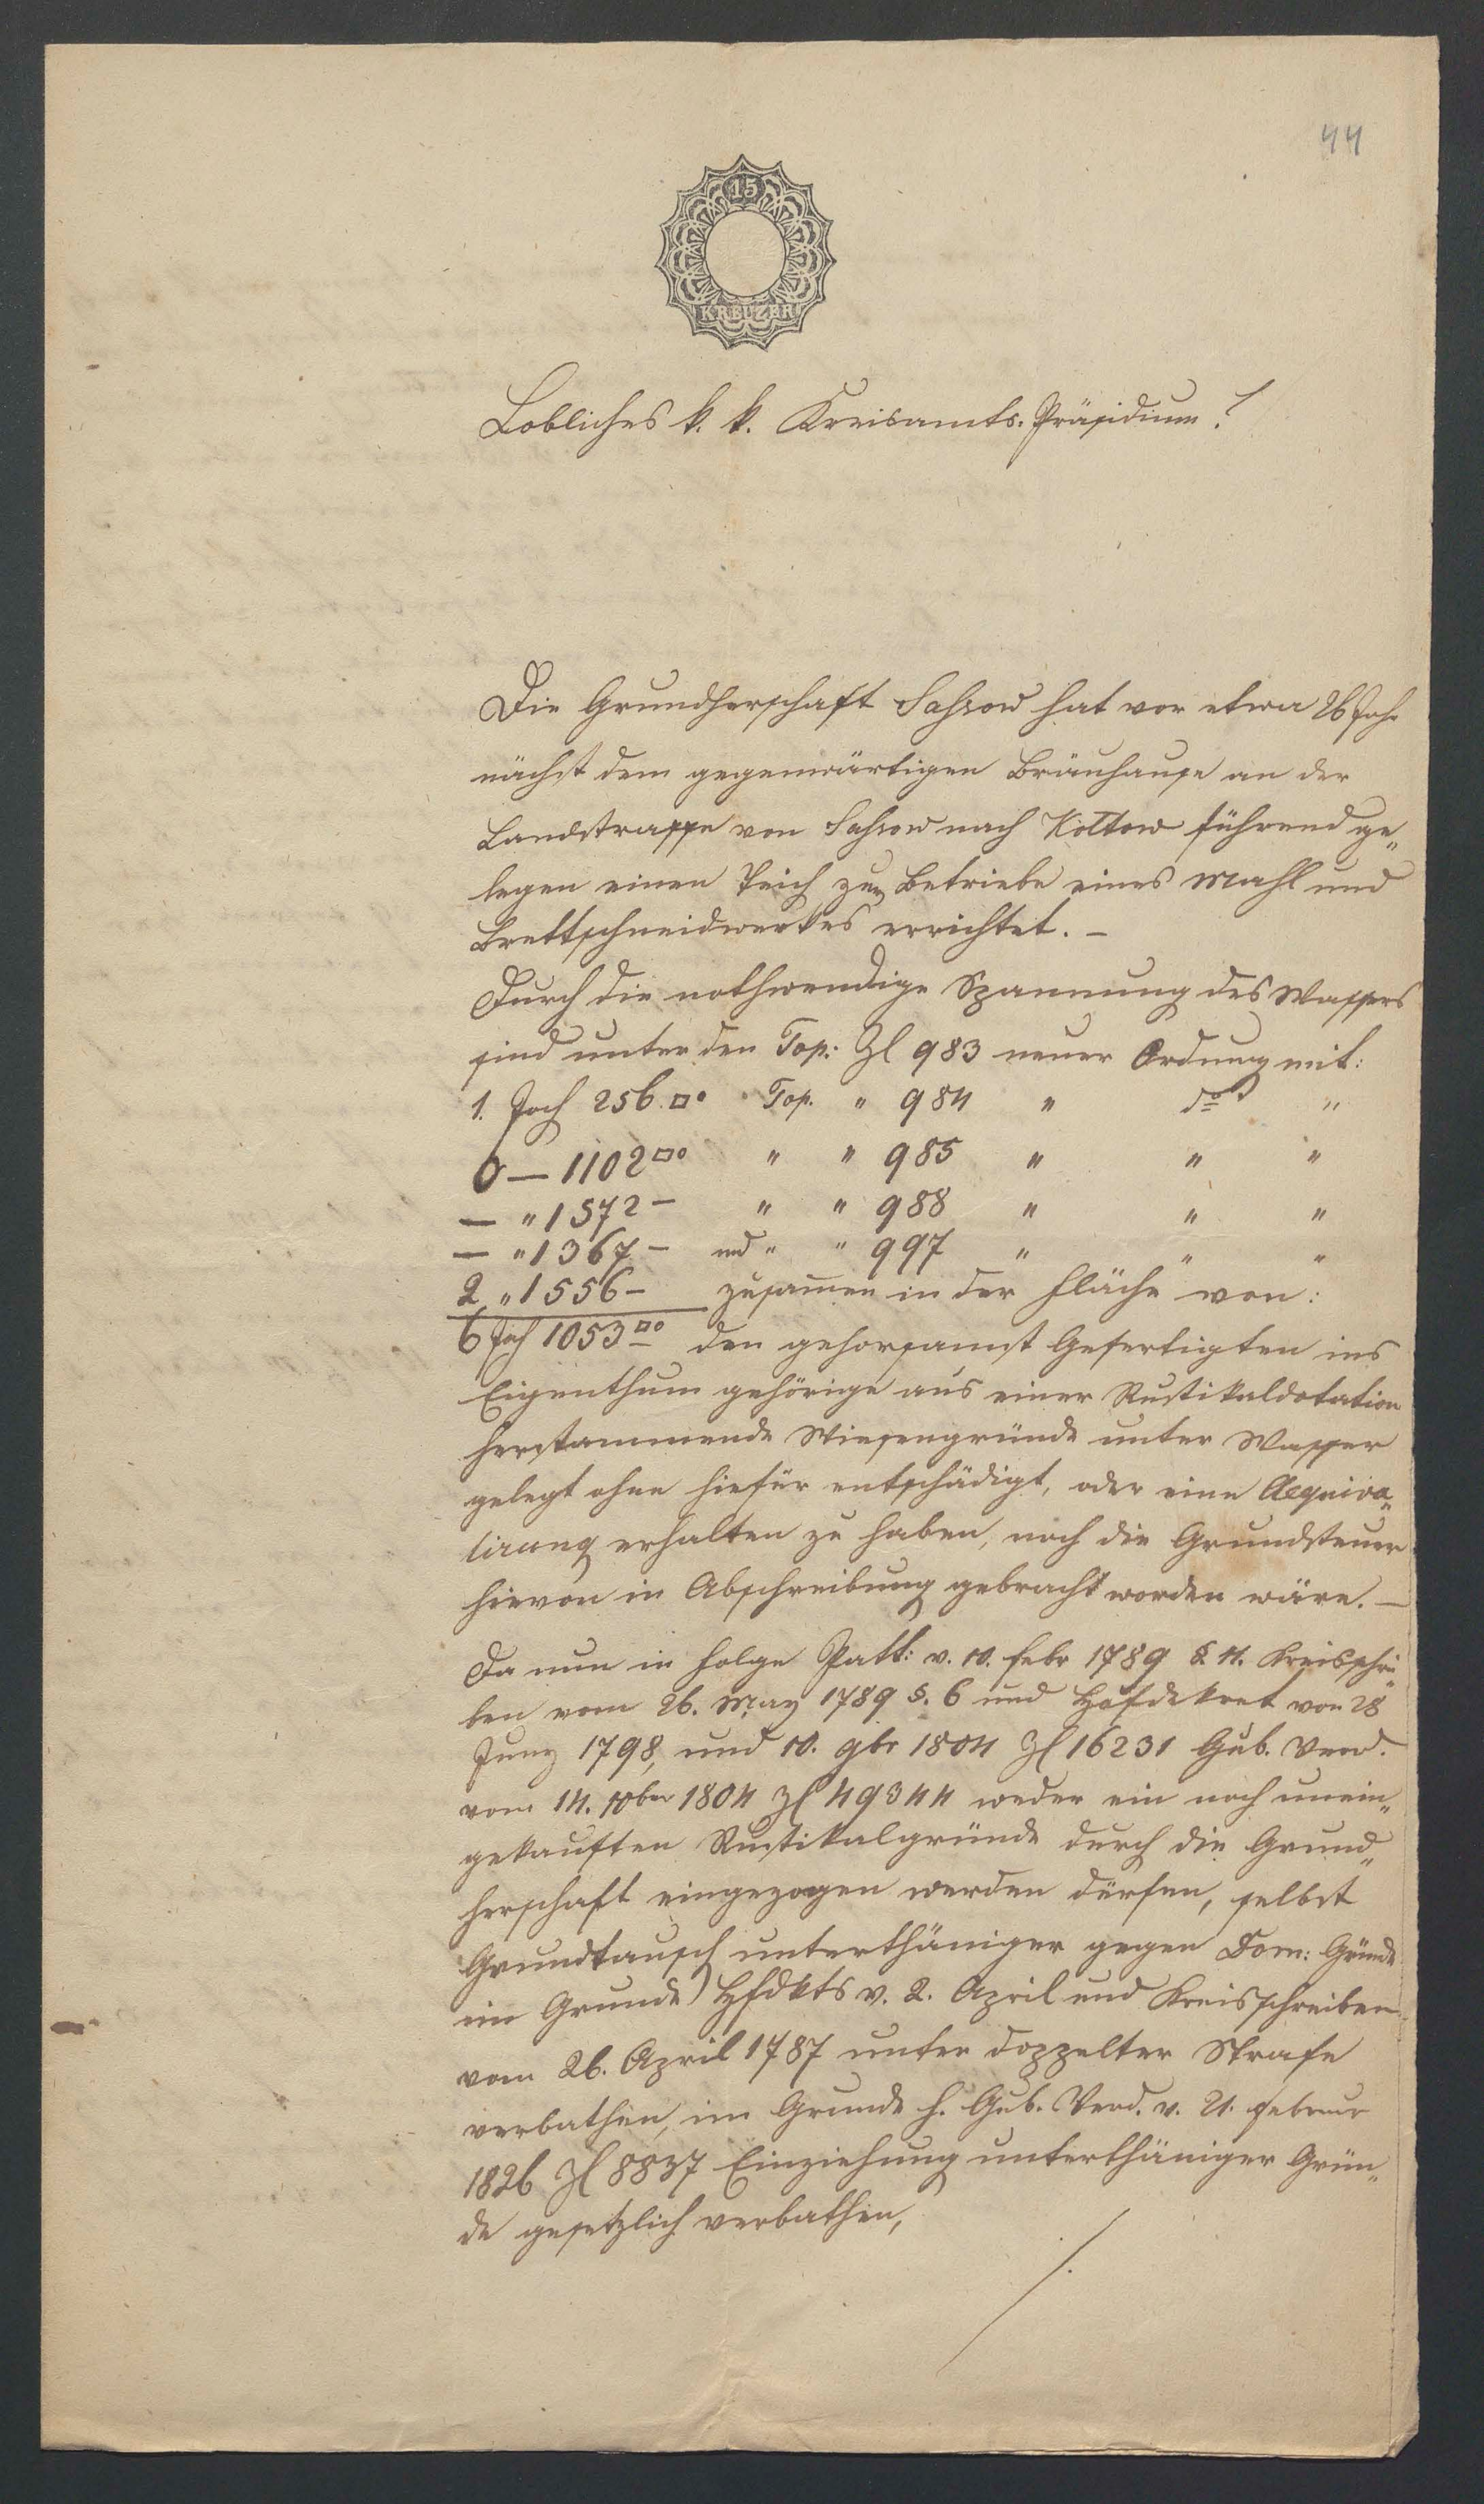 44
15
KREUZER
Lobliches k. k. Kreisamts-Präsidium!
Die Grundherschaft Sassow hat vor etwa 26 Jahr
nächst dem gegenwärtigen Bräuhause an der
Landstrasse von Sassow nach Koltow führend ge„
legen einen Teich zum Betriebe eines Mahl und
Brettschneidwerkes errichtet. –
Durch die nothwendige Spannung des Wassers
sind unter den Top: Zl 983 neuer Ordnung mit:
1. Joch 256 □° Top. " 984 " do "
0 — 1102 □° " " 985 " " "
— " 1572 — " " 988 " " "
— " 1367 — und " " 997 " " "
2 " 1556 — zusamen in der Fläche von:
6 Joch 1053 □° den gehorsamst Gefertigten ins
Eigenthum gehörige aus einer Rustikaldotation
herstammende Wiesengründe unter Wasser
gelegt ohne hiefür entschädigt, oder eine Aequiva„
lirung erhalten zu haben, noch die Grundsteuer
hievon in Abschreibung gebracht worden wäre. —
Da nun in Folge Patt: v. 10. Febr 1789 §. 4. Kreisschrei„
ben vom 26. May 1789 §. 6 und Hofdekret von 28
Juny 1798, und 10. 9br 1804 Zl 16231 Gub. Verd.
vom 14. 10ber 1804 Zl 49344 weder ein noch unein„
gekauften Rustikalgründe durch die Grund„
herschaft eingezogen werden dürfen, selbst
Grundtausch unterthäniger gegen Dom: Gründe
im Grunde Hfdkts v. 2. April und Kreisschreiben
vom 26. April 1787 unter doppelter Strafe
verbathen, im Grunde h. Gub. Verd. v. 21. Februar
1826 Zl 8837 Einziehung unterthäniger Grün„
de gesetzlich verbathen,
./.